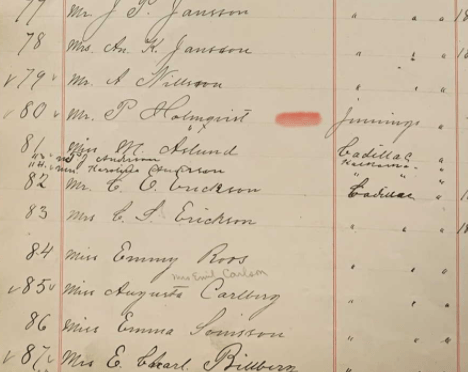 77 Mr J. P. Jansson " " " 18
78 Mrs. An. K. Jansson " " "
√ 79 √ Mr. A Nillson " " "
√ 80 √ Mr. P Holmqvist Jinnings "
81 Miss M. Aslund Cadillac "
Anderson
Anderson " " "
82 Mr. C. O. Erickson Cadillac " 1
83 Mrs C. S. Erickson " " " 18
84 Miss Emmy Roos " " "
Mrs Emil Carlson
√ 85 √ Miss Augusta Carlberg " " "
86 Miss Emma " " "
√ 87 √ Mrs E. Charl. Billberg " " "